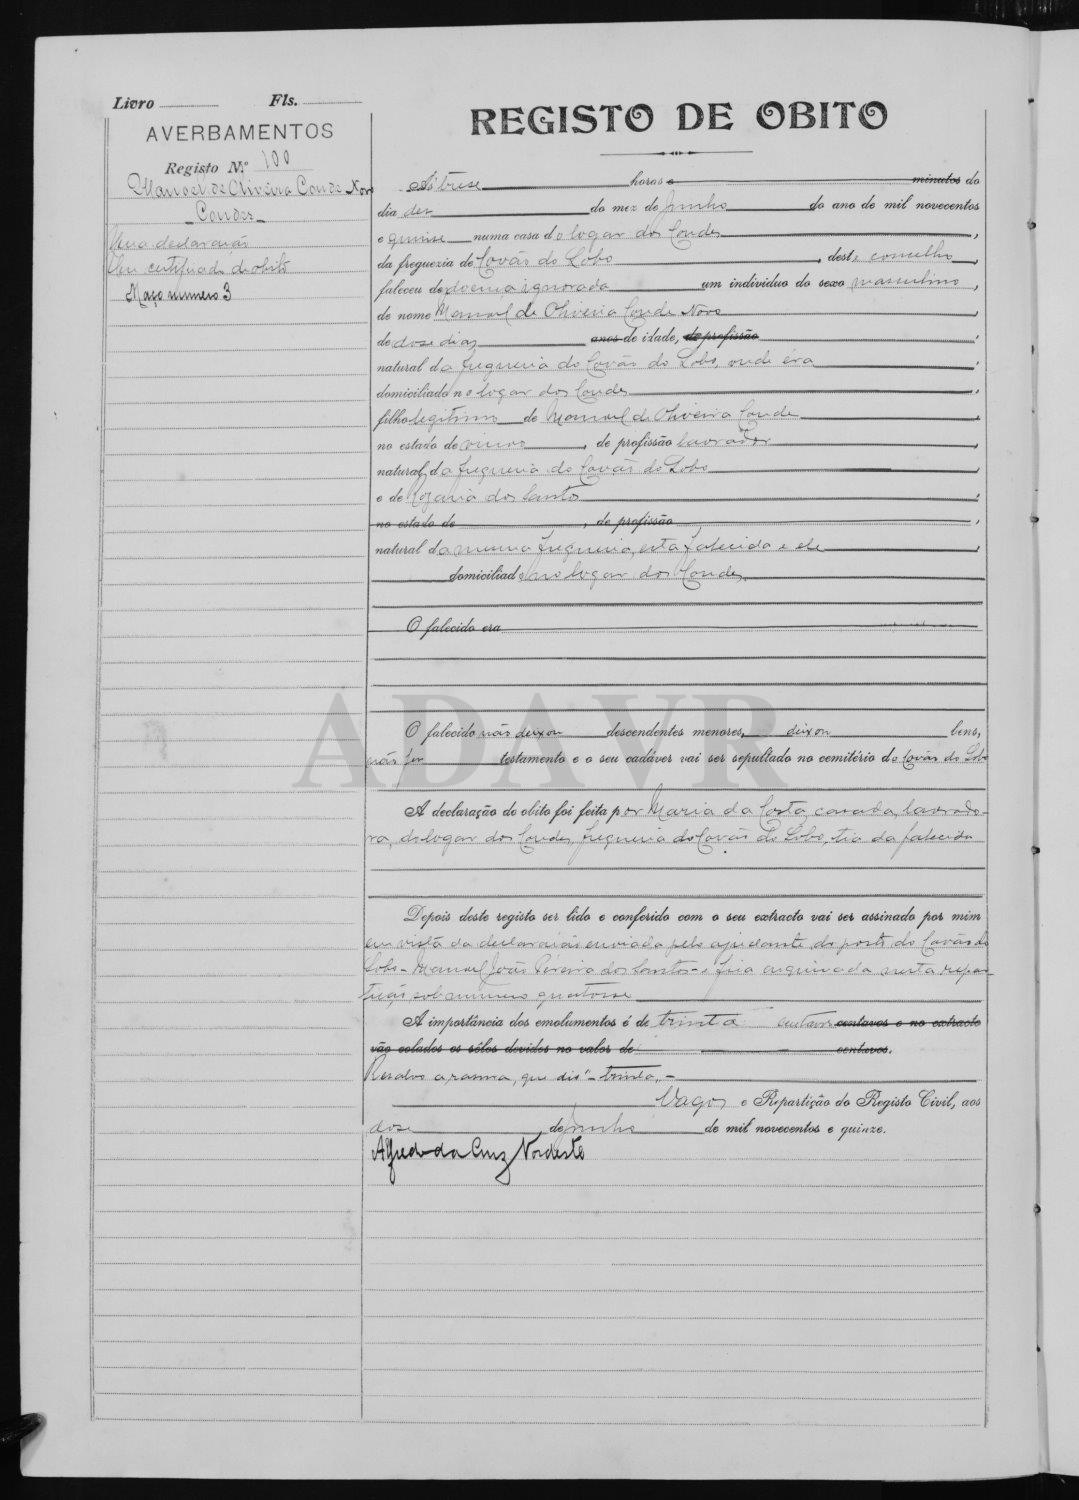 Livro Fls.
AVERBAMENTOS
Registo N.º 100
Manoel de Oliveira Conde Novo
Condes
Uma declaração
Um certificado de obito
Maço numero 3
REGISTO DE OBITO
Ás trese horas e minutos do
dia dez do mez de Junho do ano de mil novecentos
e quinse numa casa do logar dos Condes,
da freguezia de Covão do Lobo, deste concelho,
faleceu de doença ignorada um individuo do sexo masculino,
de nome Manoel de Oliveira Conde Novo,
de dose dias anos de idade, de profissão,
natural da freguesia do Covão do Lobo, onde éra,
domiciliado no logar dos Condes,
filho legitimo de Manoel de Oliveira Conde,
no estado de viuvo, de profissão lavrador,
natural da freguesia do Covão do Lobo
e de Rozaria dos Santos,
no estado de, de profissão,
natural da mesma freguesia, esta falecida e ele,
domiciliado no logar dos Condes.
O falecido era
O falecido não deixou descendentes menores, deixou bens,
não fez testamento e o seu cadáver vai ser sepultado no cemitério do Covão do Lobo
A declaração de obito foi feita por Maria da Costa, casada, lavrado-
ra, do logar dos Condes, freguesia do Covão do Lobo, tia da falecido
Depois deste registo ser lido e conferido com o seu extracto vai ser assinado por mim
em vista da declaração enviada pelo ajudante do posto do Covão do
Lobo - Manoel João Pereira dos Santos - e fica arquivada nesta repar-
tição sob numero quatorse
A importância dos emolumentos é de trinta centavos centavos e no extracto
vão colados os sêlos devidos no valor de centavos.
Resalvo a rasura, que diz "trinta" -
Vagos e Repartição do Registo Civil, aos
dose de Junho de mil novecentos e quinze.
Alfredo da Cruz Nordeste
ADAVR